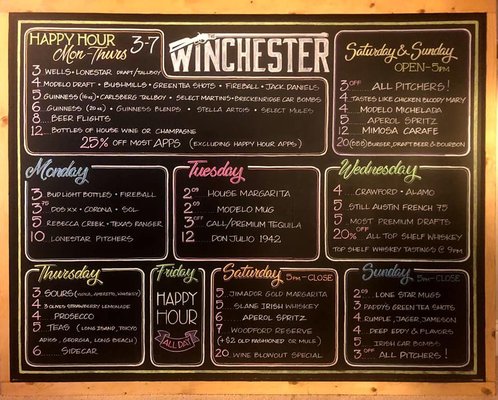 HAPPY HOUR 3-7
Mon-Thurs
WINCHESTER
3 WELLS • LONESTAR DRAFT/TALLBOY
4 MODELO DRAFT • BUSHMILLS • GREEN TEA SHOTS • FIREBALL • JACK DANIELS
5 GUINNESS (16oz) • CARLSBERG TALLBOY • SELECT MARTINIS • BRECKENRIDGE CAR BOMBS
6 GUINNESS (20oz) • GUINNESS BLENDS • STELLA ARTOIS • SELECT MULES
8... BEER FLIGHTS
12... BOTTLES OF HOUSE WINE OR CHAMPAGNE
25% OFF MOST APPS (EXCLUDING HAPPY HOUR APPS)
Saturday & Sunday
OPEN-5PM
3 OFF ALL PITCHERS!
4... TASTES LIKE CHICKEN BLOODY MARY
4... MODELO MICHELADA
5... APEROL SPRITZ
12... MIMOSA CARAFE
20 (BBB) BURGER, DRAFT BEER & BOURBON
Monday
3 BUD LIGHT BOTTLES • FIREBALL
3.75 DOS XX • CORONA • SOL
5 REBECCA CREEK • TEXAS RANGER
10 LONESTAR PITCHERS
Tuesday
2 OFF HOUSE MARGARITA
2 OFF MODELO MUG
3 OFF CALL/PREMIUM TEQUILA
12... DON JULIO 1942
Wednesday
4... CRAWFORD • ALAMO
5 STILL AUSTIN FRENCH 75
5 MOST PREMIUM DRAFTS
20% OFF ALL TOP SHELF WHISKEY
TOP SHELF WHISKEY TASTINGS @ 9PM
Thursday
3 SOURS (VODKA, AMARETTO, WHISKEY)
4 3 OLIVES STRAWBERRY LEMONADE
4 PROSECCO
5 TEAS (LONG ISLAND, TOKYO
ADIOS, GEORGIA, LONG BEACH)
6... SIDECAR
Friday
HAPPY
HOUR
ALL DAY
Saturday 5PM-CLOSE
5... JIMADOR GOLD MARGARITA
5... SLANE IRISH WHISKEY
6... APEROL SPRITZ
7... WOODFORD RESERVE
(+$2 OLD FASHIONED OR MULE)
20 WINE BLOWOUT SPECIAL
Sunday 5PM-CLOSE
2 OFF... LONE STAR MUGS
3 PADDYS GREEN TEA SHOTS
4 RUMPLE, JAGER, JAMESON
4 DEEP EDDY & FLAVORS
5 IRISH CAR BOMBS
3 OFF ALL PITCHERS!